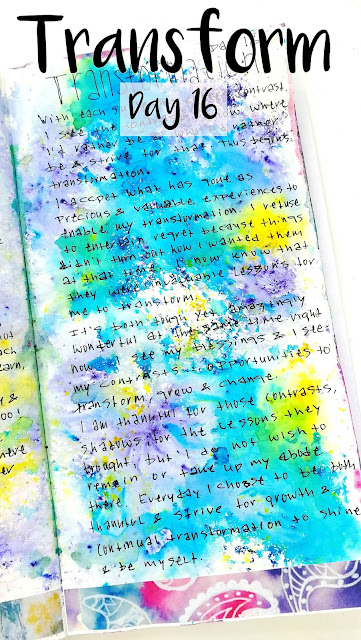 Transform
Day 16
Transformation
With each s contrast
I see
I'd rather be rather
be & strive for that. Thus begins
transformation.
I accpet what has gone as
Precious & valuable experiences to
enable my transformation. I refuse
to entertain regret because things
didn't turn out how I wanted them
at that time. I now know that
they were invaluable lessons for
me to transform.
It's both tough yet amazingly
wonderful at the same time right
now. I see my blessings & I see
my contrasts... opportunities to
transform, grow & change.
I am thankful for those contrasts,
shadows for the lessons they
brought, but I do not wish to
remain or take up my abode
there. Everyday I choose to be both
thankful & strive for growth &
continual transformation to shine
& be myself.
not
ach
earn,
&
oo!
ntre
er